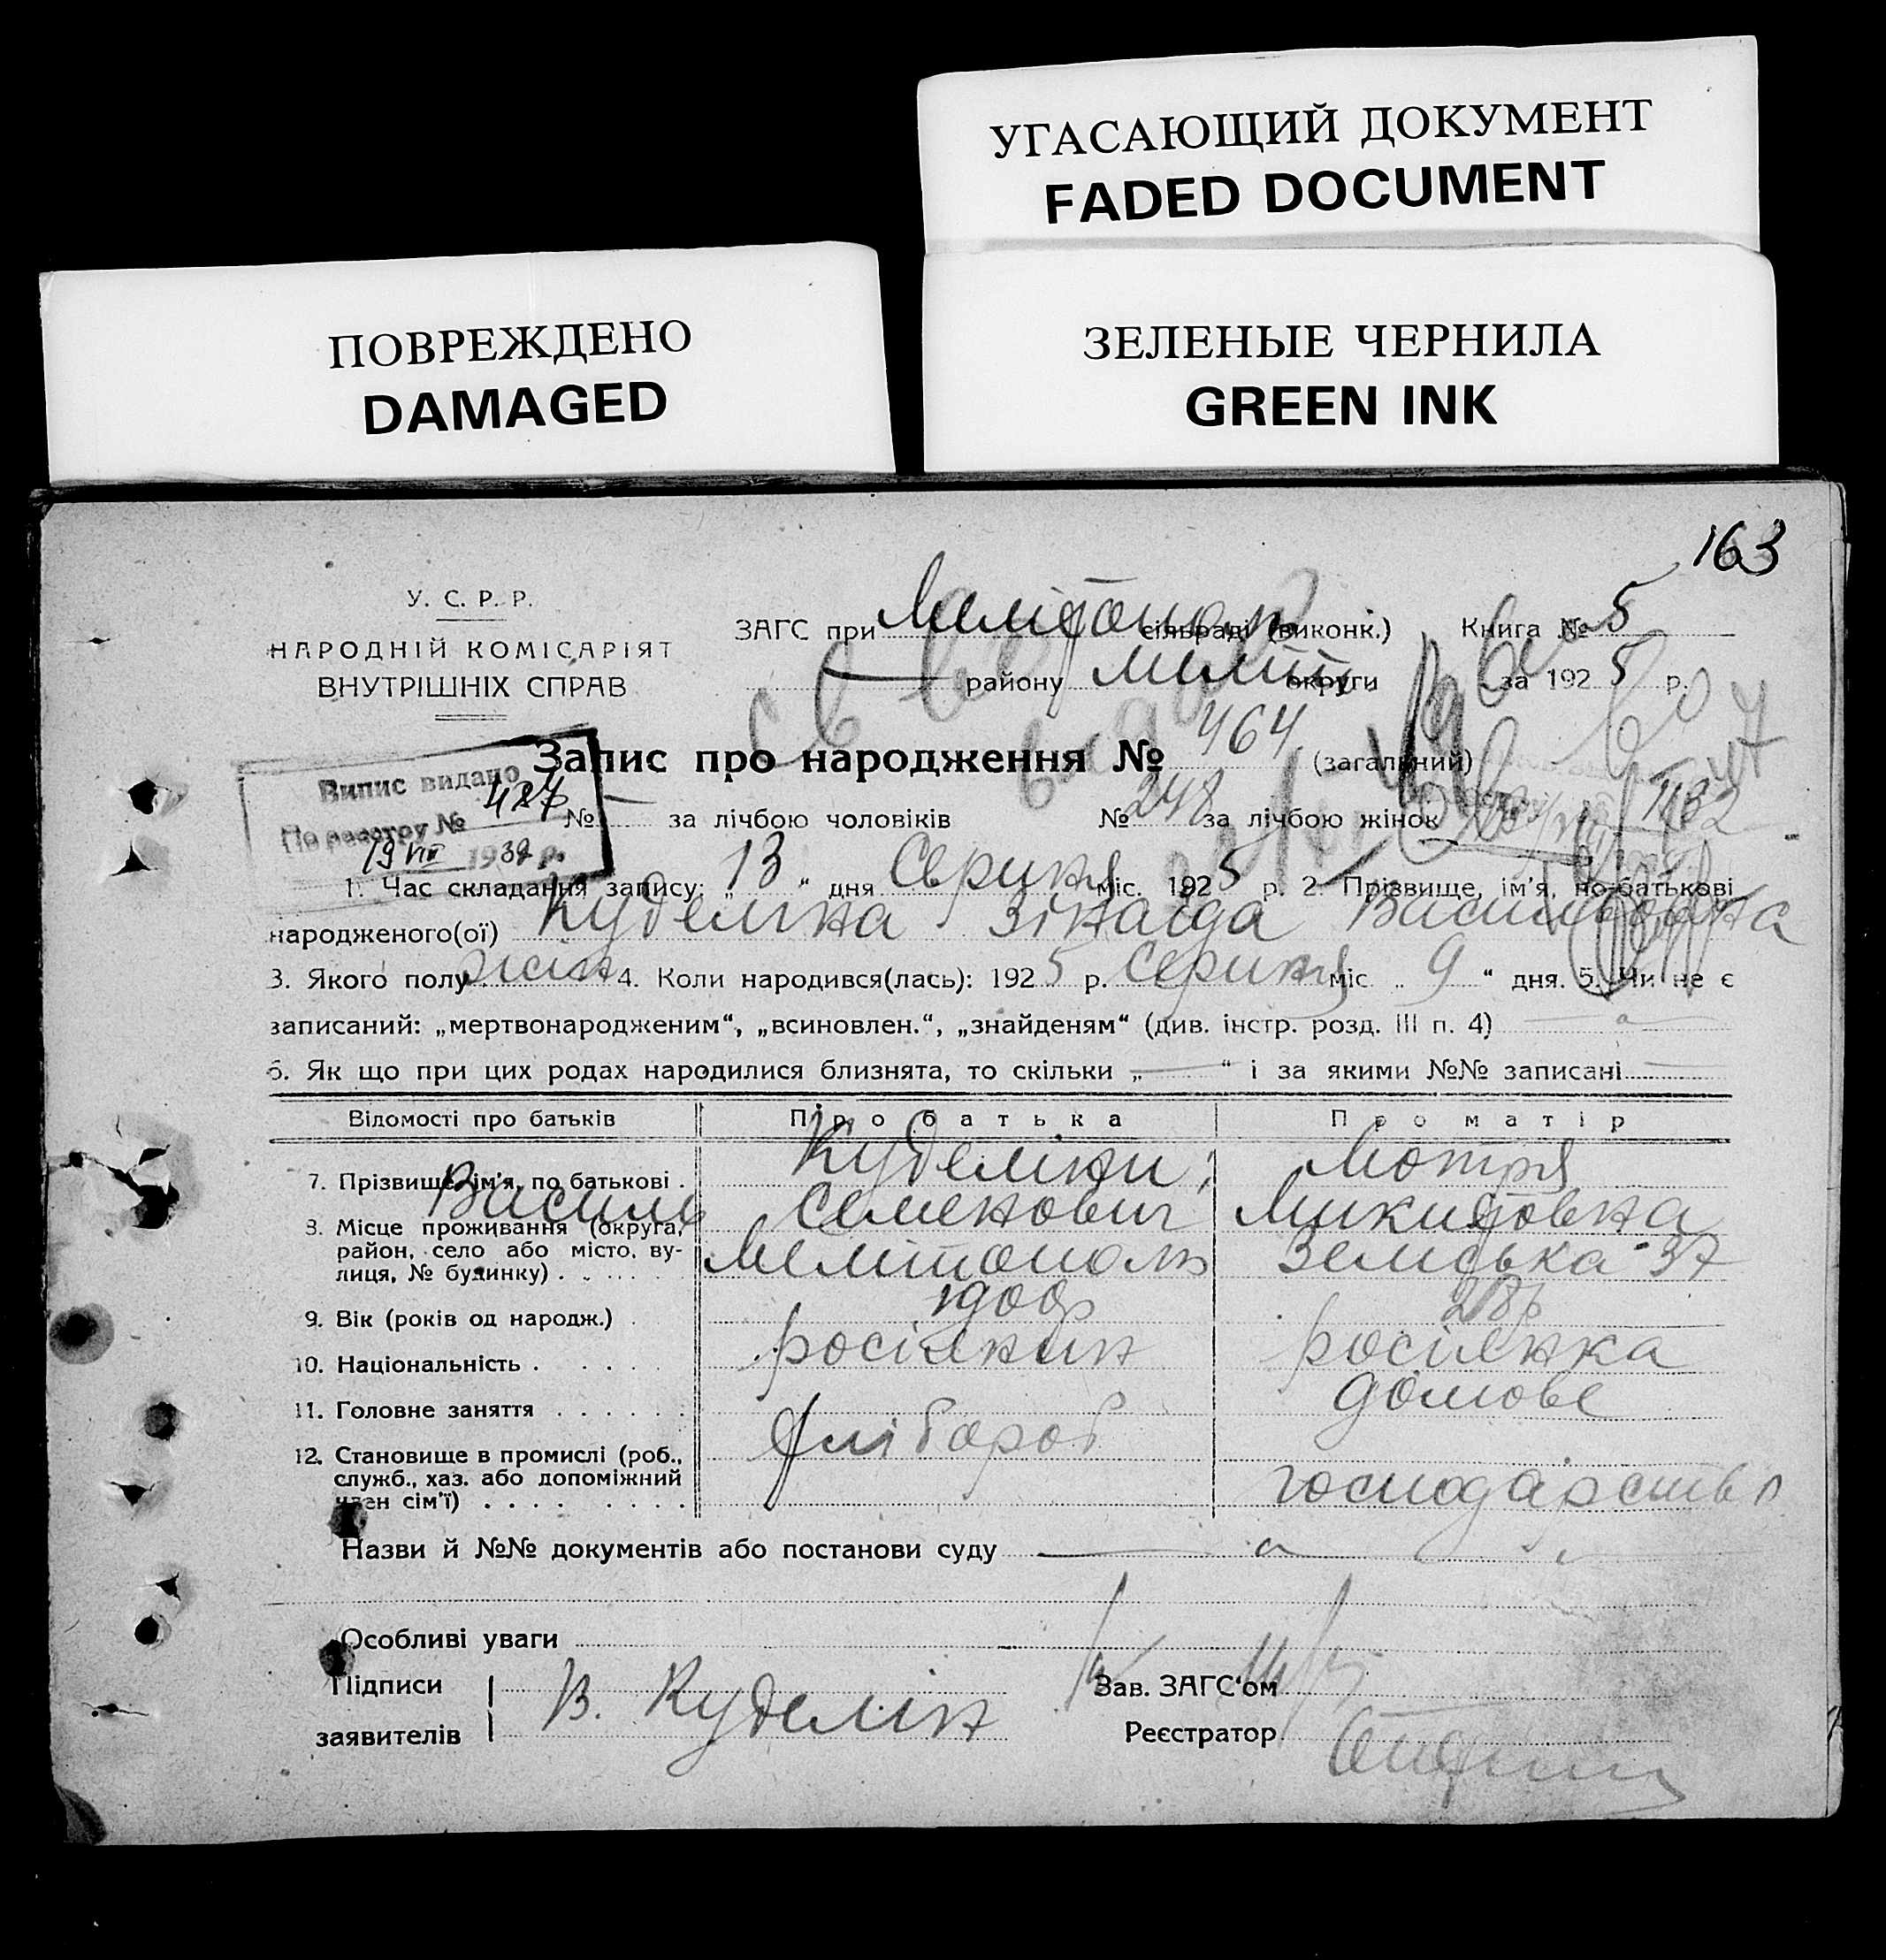 УГАСАЮЩИЙ ДОКУМЕНТ
FADED DOCUMENT
ПОВРЕЖДЕНО
DAMAGED
ЗЕЛЕНЫЕ ЧЕРНИЛА
GREEN INK
163
У. С. Р. Р.
НАРОДНІЙ КОМІСАРІЯТ
ВНУТРІШНІХ СПРАВ
ЗАГС при Мелітополь сільраді (виконк.) Книга № 5
— району Меліт. округи за 1925 р.
Запис про народження № 464 (загальний)
Випис видано
По реєстру №
19 VII 1932 р.
№ — за лічбою чоловіків № 248 за лічбою жінок
1. Час складання запису: „13“ дня Серпня міс. 1925 р. 2. Прізвище, ім'я, по-батькові
народженого(ої) Куделіна Зінаїда Васильовна
3. Якого полу жін 4. Коли народився(лась): 1925 р. Серпня міс. „9“ дня. 5. Чи не є
записаний: „мертвонародженим“, „всиновлен.“, „знайденям“ (див. інстр. розд. III п. 4) —
6. Як що при цих родах народилися близнята, то скільки „—“ і за якими №№ записані —
Відомості про батьків Про батька Про матір
7. Прізвище, ім'я, по батькові . Куделіни, Мотря
Василь Семенович Микитовна
8. Місце проживання (округа,
район, село або місто, ву-
лиця, № будинку) . . . . Мелітополь Земська 37
9. Вік (років од народж.) . 28р
10. Національність . . . . . росіянин росіянка
11. Головне заняття . . . . . . хлібороб домове
12. Становище в промислі (роб.,
служб., хаз. або допоміжний
член сім'ї) . . . . . . . . господарство
Назви й №№ документів або постанови суду —
Особливі уваги
Підписи
заявителів В. Куделін
Зав. ЗАГС'ом
Реєстратор